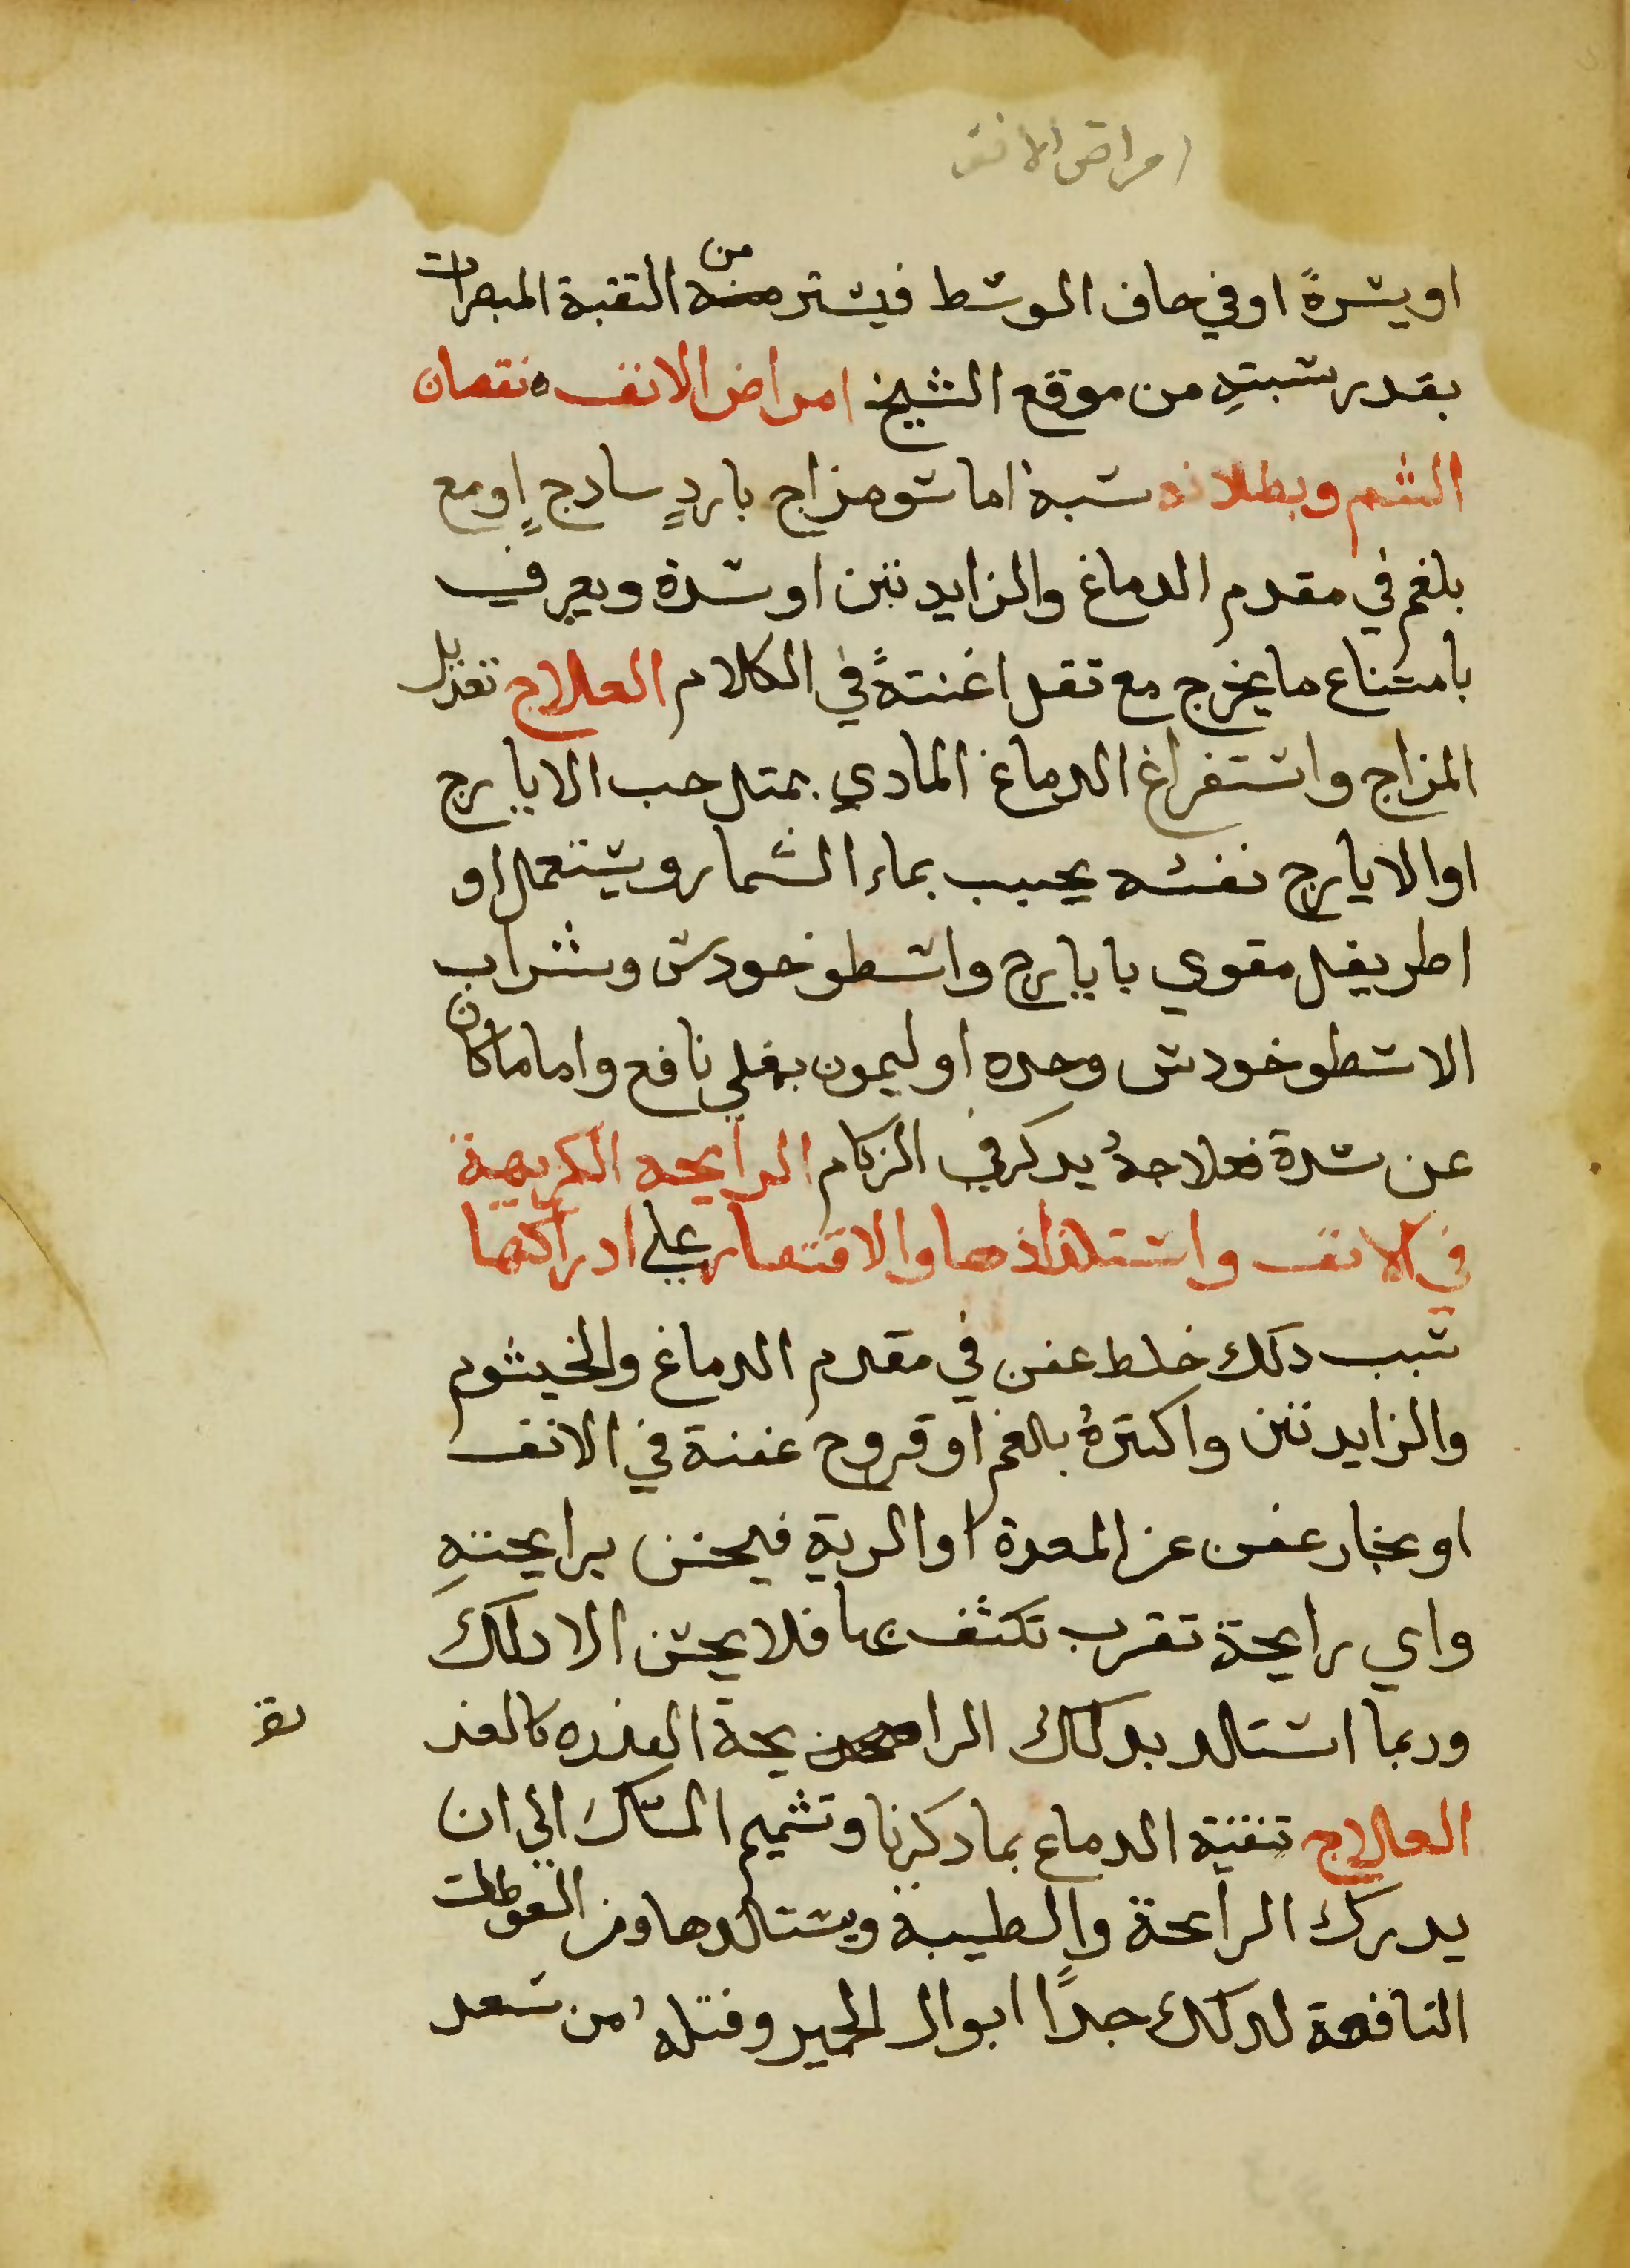 امراض الانف
او يسرةً او في حاف الوسط فيستر من الثقبة المبصرات
بقدر نسبته من موقع الشبح امراض الانف ه نقصان
الشم وبطلانه سببه اما سو مزاج باردٍ سادج اٍو مع
بلغم في مقدم الدماغ والزايدتين او سدة ويعرف
بامتناع ما يخرج مع تقل اغنتةً في الكلام العلاج تعديل
المزاج واستفراغ الدماغ المادي بمتل حب الايارج
او الايارج نفسه يحبب بماء الشمار ويستعمل او
اطريفل مقوي بايارج واسطوخودس وشراب
الاسطوخودس وحده او ليمون بغلي نافع واما ما كان
عن سدة فعلاجهُ يدكر في الزكام الرايحه الكريهة
في الانف واستلذاذها والاقتصار علي ادراكها
سبب دلك خلط عفن في مقدم الدماغ والخيشوم
والزايدتين واكترهُ بلغم او قروح عفنة في الانف
او بخار عفن عن المعدة او الرية فيحس برايحته
واي رايحة تقرب تكثف بها فلا يحس الا دلك
وربما استالد بدلك الرا يحة العذره كالعذ
تقر
العلاج تنقية الدماغ بما دكرنا وتشميم المسك الي ان
يدرك الرايحة والطيبة ويستالدها ومن السعوطات
النافعة لدلك جدًا ابوال الحمير وفتلهُ من سعد